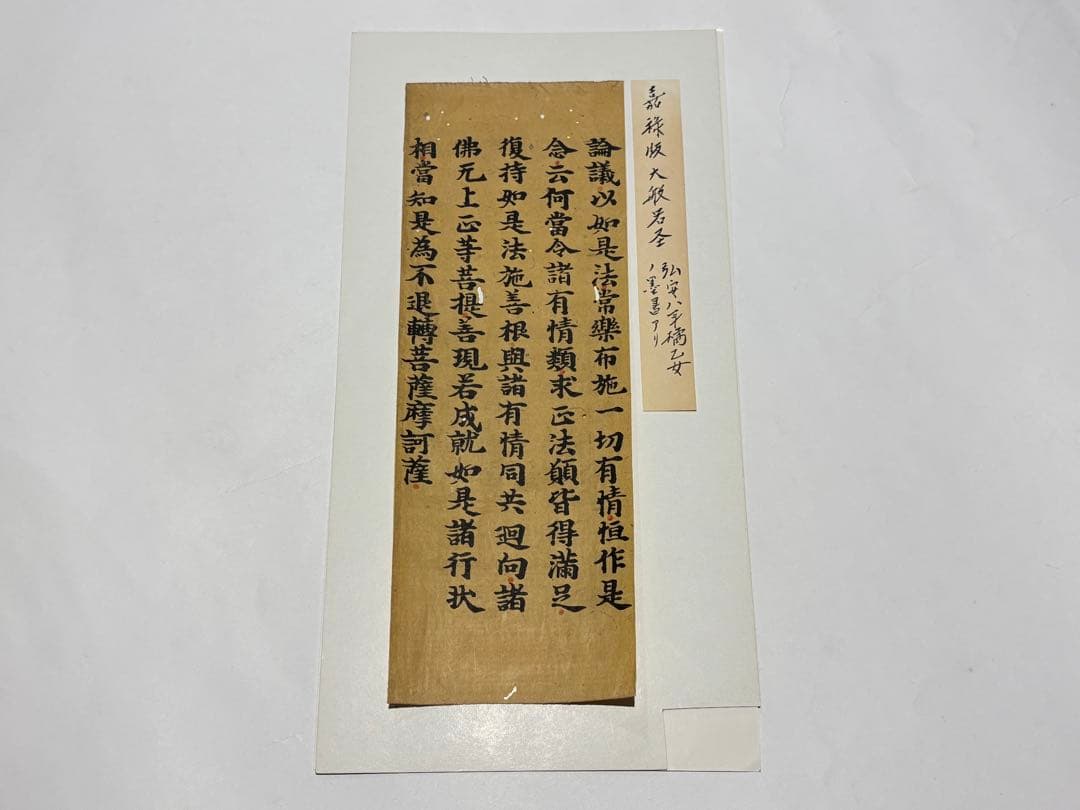 嘉祿版大般若圣 弘安八年橘乙女
ノ墨書アリ
論議以如是法常樂布施一切有情恒作是
念云何當令諸有情類求正法願皆得滿足
復持如是法施善根與諸有情同共迴向諸
佛无上正等菩提善現若成就如是諸行狀
相當知是為不退轉菩薩摩訶薩